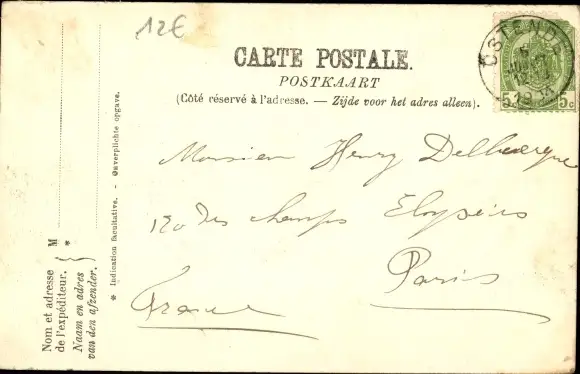 12€
CARTE POSTALE.
POSTKAART
(Côté réservé à l'adresse. — Zijde voor het adres alleen).
OSTENDE
5 c 5 c
Monsieur Henry
des Champs Elysées
Paris
France
Nom et adresse
de l'expéditeur.
Naam en adres
van den afzender.
M
*
* Indication facultative. - Onverplichte opgave.